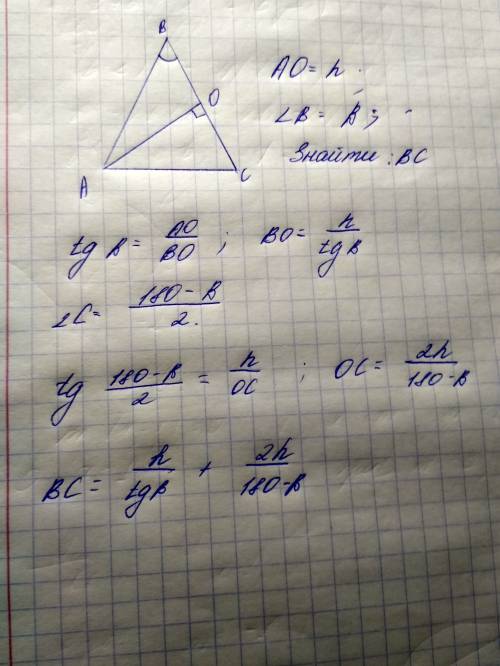 B
O
A
C
AO = h
∠B = B;
Знайти: BC
tg B = AO/BO ; BO = h/tg B
∠C = (180 - B)/2.
tg (180 - B)/2 = h/OC ; OC = 2h/(180 - B)
BC = h/tg B + 2h/(180 - B)